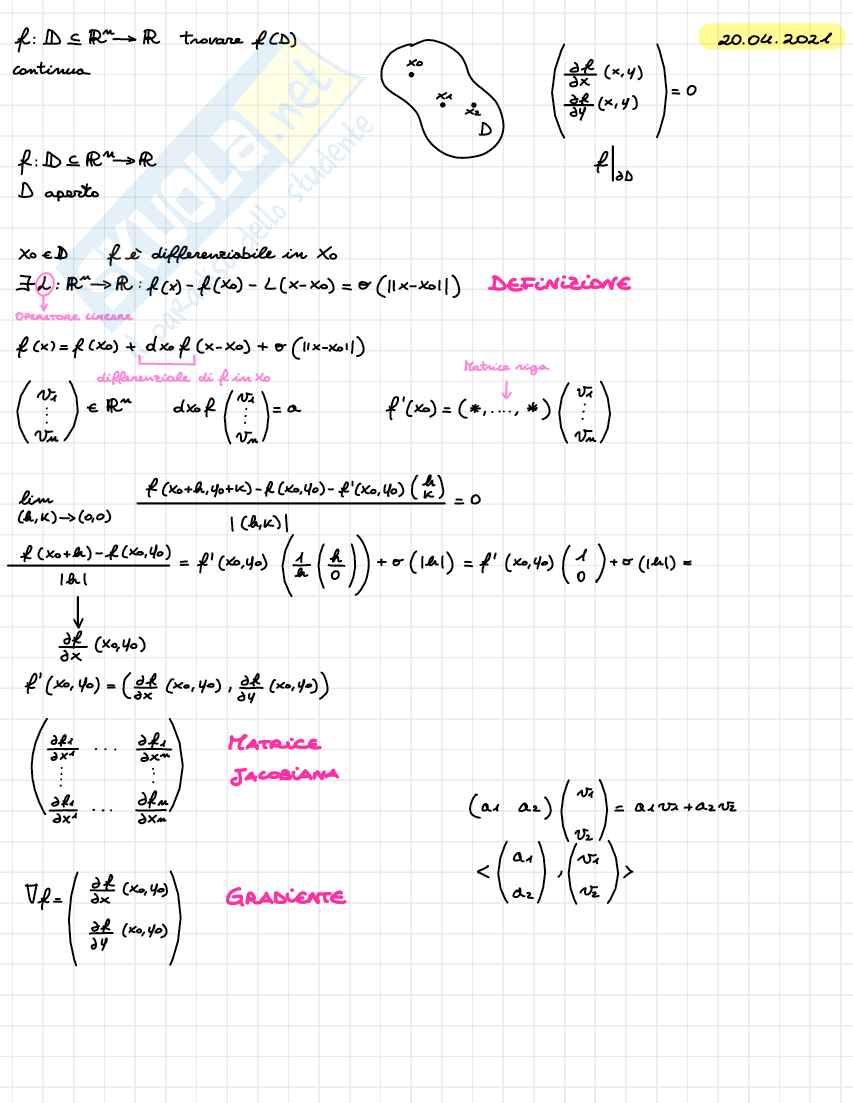 20.04.2021
f: D ⊆ ℝⁿ → ℝ trovare f(D)
continua
x₀
x₁
x₂
D
(∂f/∂x (x,y)
∂f/∂y (x,y)) = 0
f|∂D
f: D ⊆ ℝⁿ → ℝ
D aperto
x₀ ∈ D f è differenziabile in x₀
∃ L: ℝⁿ → ℝ : f(x) - f(x₀) - L(x-x₀) = σ(||x-x₀||) DEFINIZIONE
OPERATORE LINEARE
f(x) = f(x₀) + dx₀f (x-x₀) + σ(||x-x₀||)
differenziale di f in x₀
Matrice riga
(v₁ ⋮ vₙ) ∈ ℝⁿ dx₀f (v₁ ⋮ vₙ) = a f'(x₀) = (*, ...., *) (v₁ ⋮ vₙ)
lim (h,k)→(0,0) f(x₀+h, y₀+k) - f(x₀,y₀) - f'(x₀,y₀) (h k) / |(h,k)| = 0
f(x₀+h) - f(x₀,y₀) / |h| = f'(x₀,y₀) (1/h (h 0)) + σ(|h|) = f'(x₀,y₀) (1 0) + σ(|h|) =
↓
∂f/∂x (x₀,y₀)
f'(x₀,y₀) = (∂f/∂x (x₀,y₀), ∂f/∂y (x₀,y₀))
(∂f₁/∂x¹ ... ∂f₁/∂xⁿ
⋮ ⋮
∂f₁/∂x¹ ... ∂fₙ/∂xₙ)
MATRICE
JACOBIANA
(a₁ a₂) (v₁ v₂) = a₁v₁+a₂v₂
< (a₁ a₂), (v₁ v₂) >
∇f = (∂f/∂x (x₀,y₀)
∂f/∂y (x₀,y₀))
GRADIENTE
SKUOLA.net